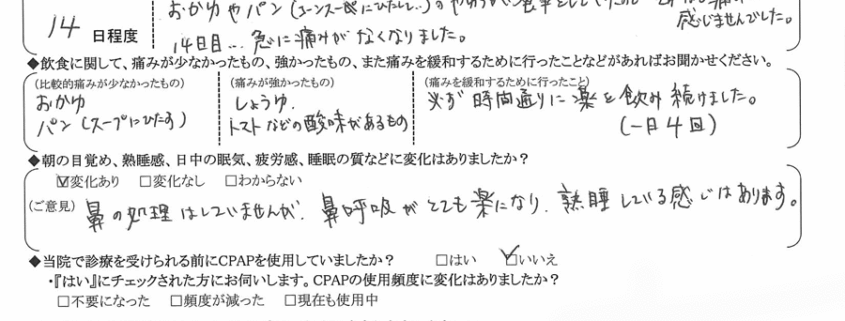 おかゆやパン(スープにひたして…)の
感じませんでした。
14 日程度
14日目… 急に痛みがなくなりました。
◆飲食に関して、痛みが少なかったもの、強かったもの、また痛みを緩和するために行ったことなどがあればお聞かせください。
(比較的痛みが少なかったもの) (痛みが強かったもの) (痛みを緩和するために行ったこと)
おかゆ しょうゆ. 必ず時間通りに薬を飲み続けました。
パン(スープにひたす) トマトなどの酸味があるもの (一日4回)
◆朝の目覚め、熟睡感、日中の眠気、疲労感、睡眠の質などに変化はありましたか?
☑変化あり □変化なし □わからない
(ご意見) 鼻の処理はしていませんが、鼻呼吸がとても楽になり、熟睡している感じはあります。
◆当院で診療を受けられる前にCPAPを使用していましたか? □はい ☑いいえ
・『はい』にチェックされた方にお伺いします。CPAPの使用頻度に変化はありましたか?
□不要になった □頻度が減った □現在も使用中